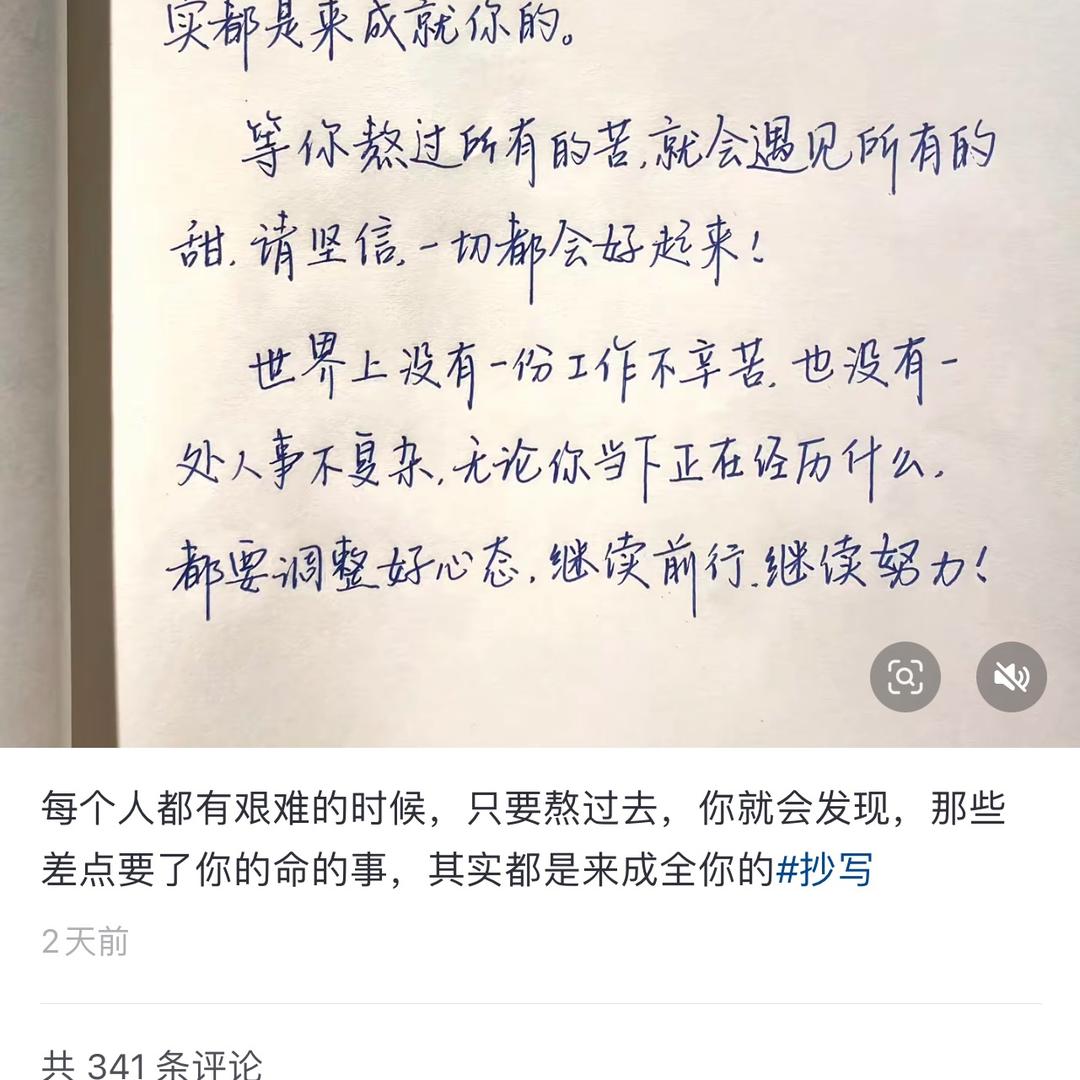 实都是来成就你的。
等你熬过所有的苦,就会遇见所有的
甜.请坚信,一切都会好起来!
世界上没有一份工作不辛苦,也没有一
处人事不复杂,无论你当下正在经历什么,
都要调整好心态,继续前行.继续努力!
每个人都有艰难的时候，只要熬过去，你就会发现，那些
差点要了你的命的事，其实都是来成全你的#抄写
2天前
共 341 条评论